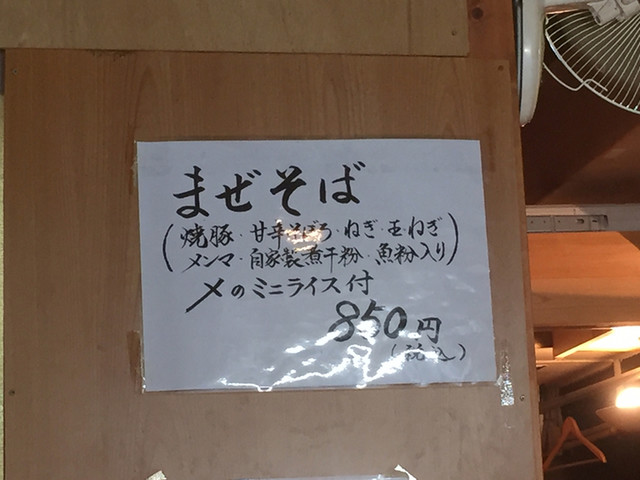 まぜそば
(焼豚・甘辛そぼろ・ねぎ・玉ねぎ
メンマ・自家製煮干粉・魚粉入り)
〆のミニライス付
850円
(税込)